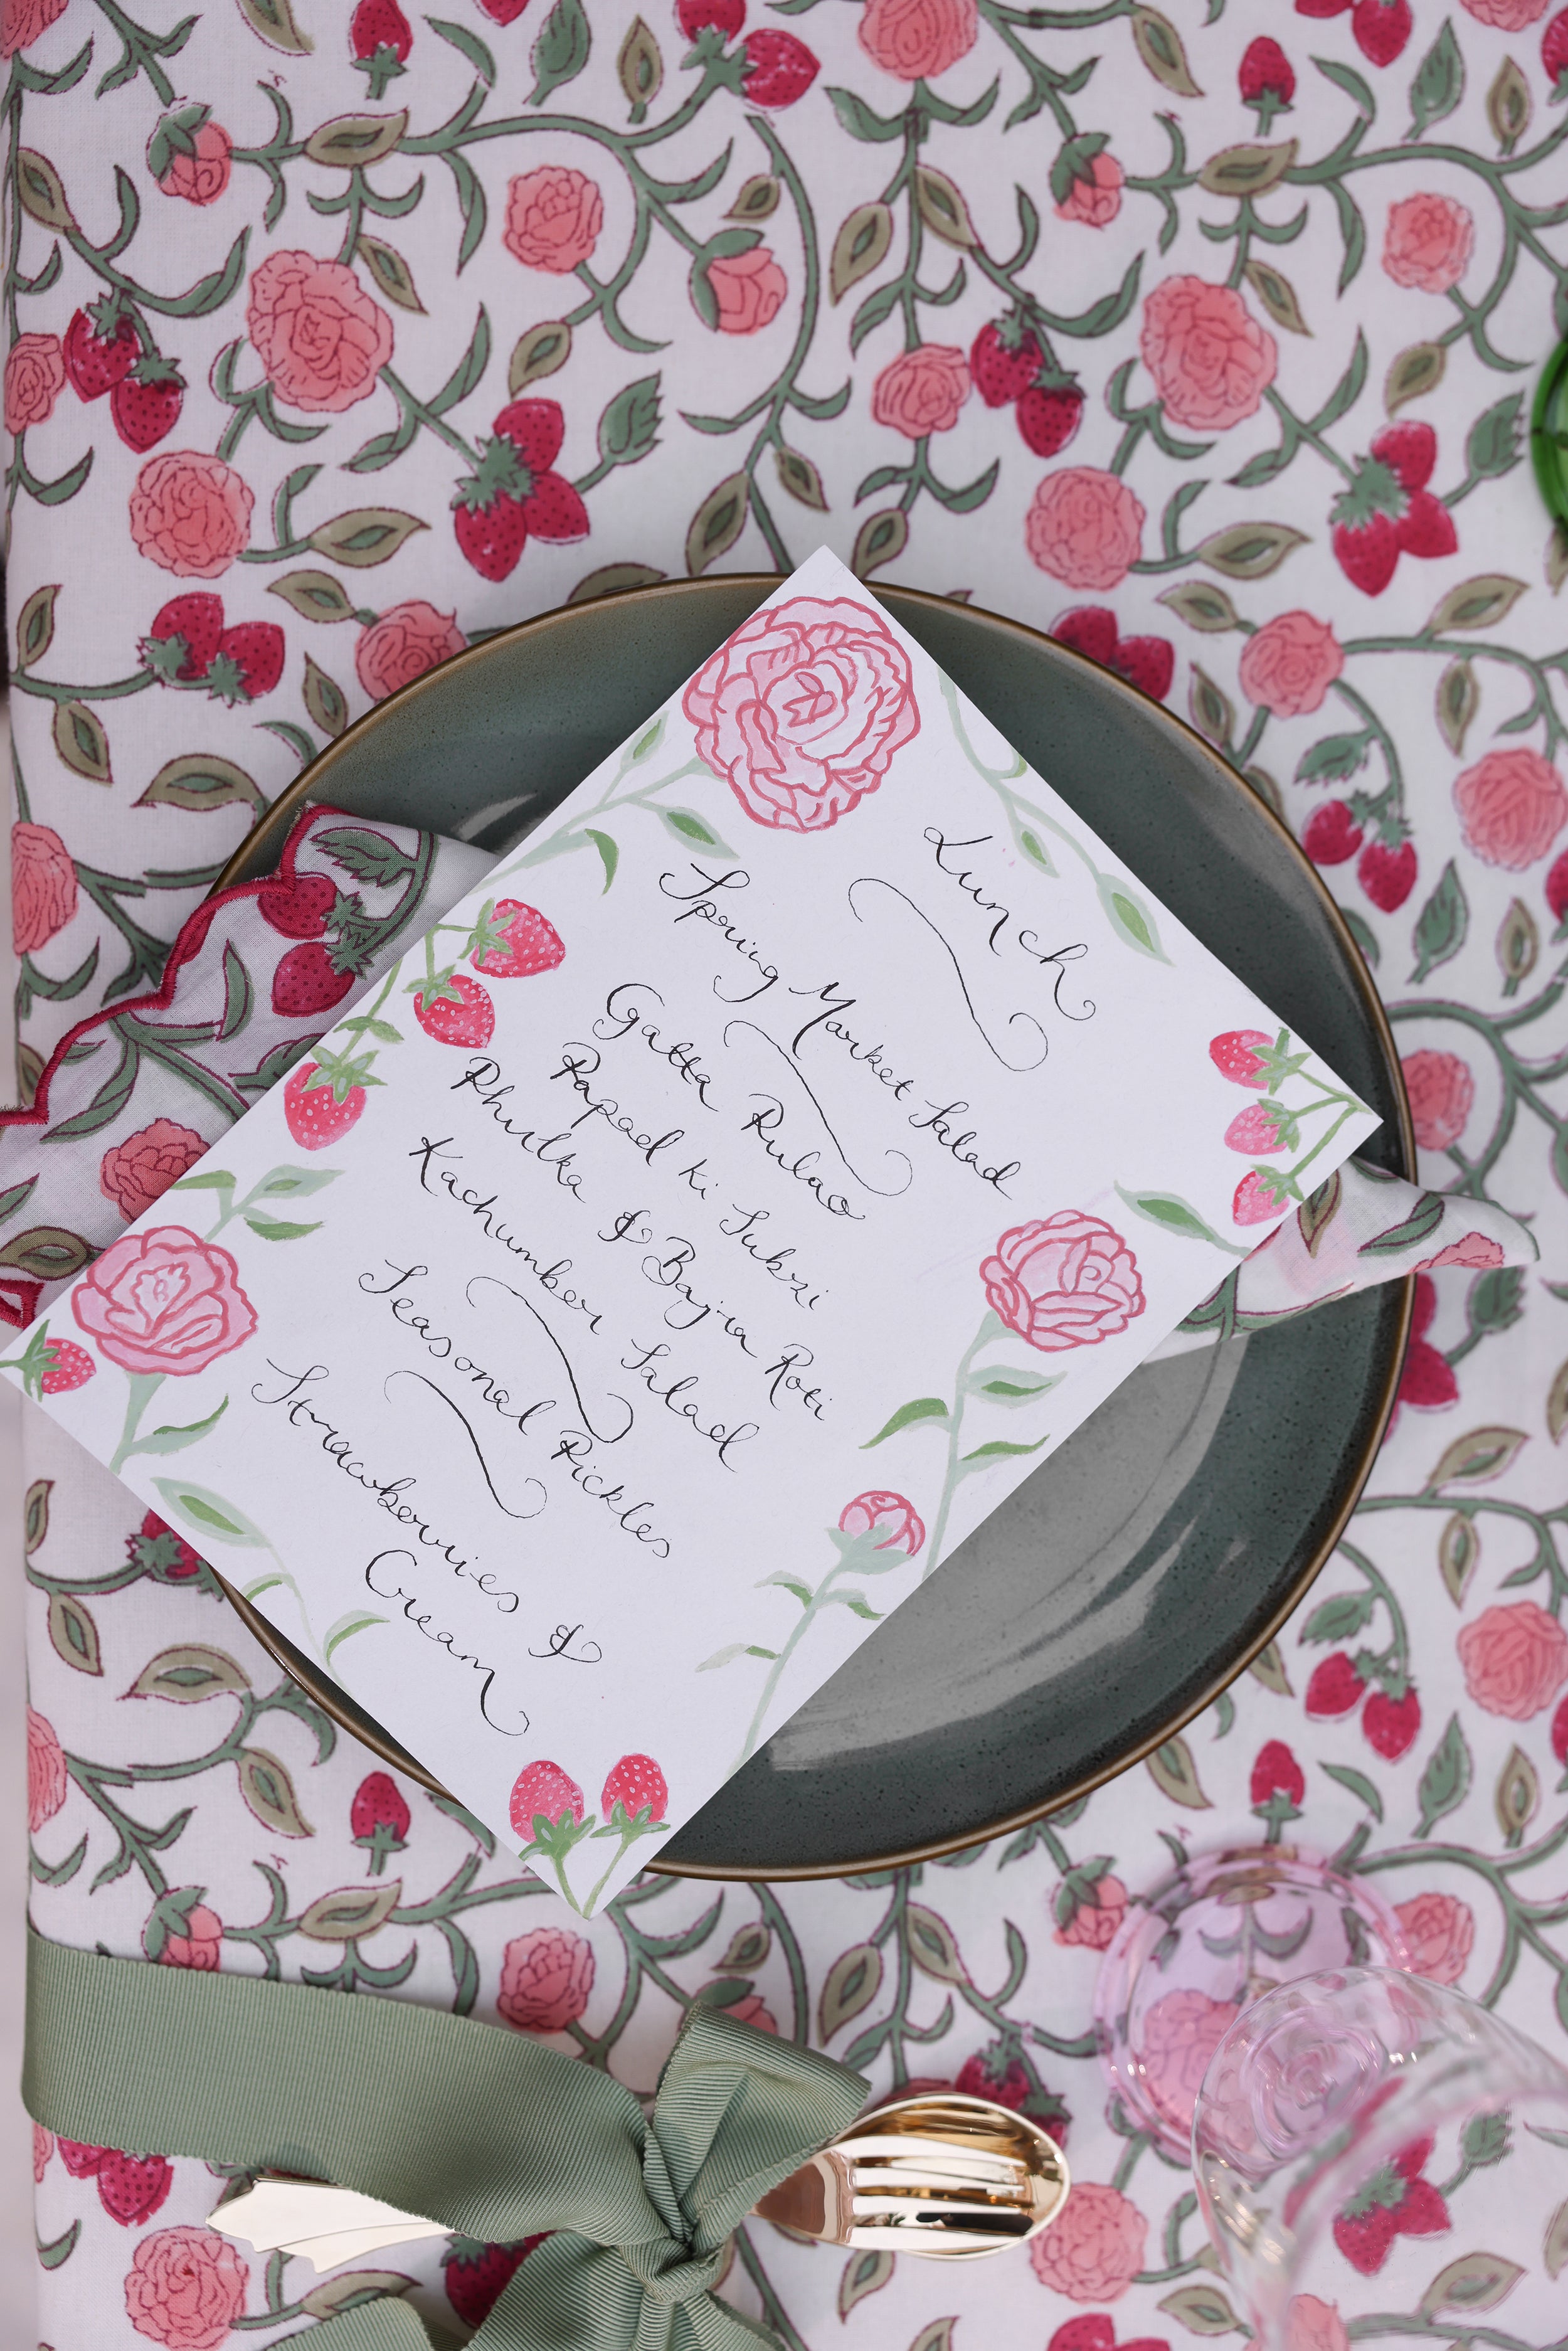 Lunch
Spring Market Salad
Gatta Pulao
Papad ki Subzi
Phulka & Bajra Roti
Kachumber Salad
Seasonal Pickles
Strawberries &
Cream